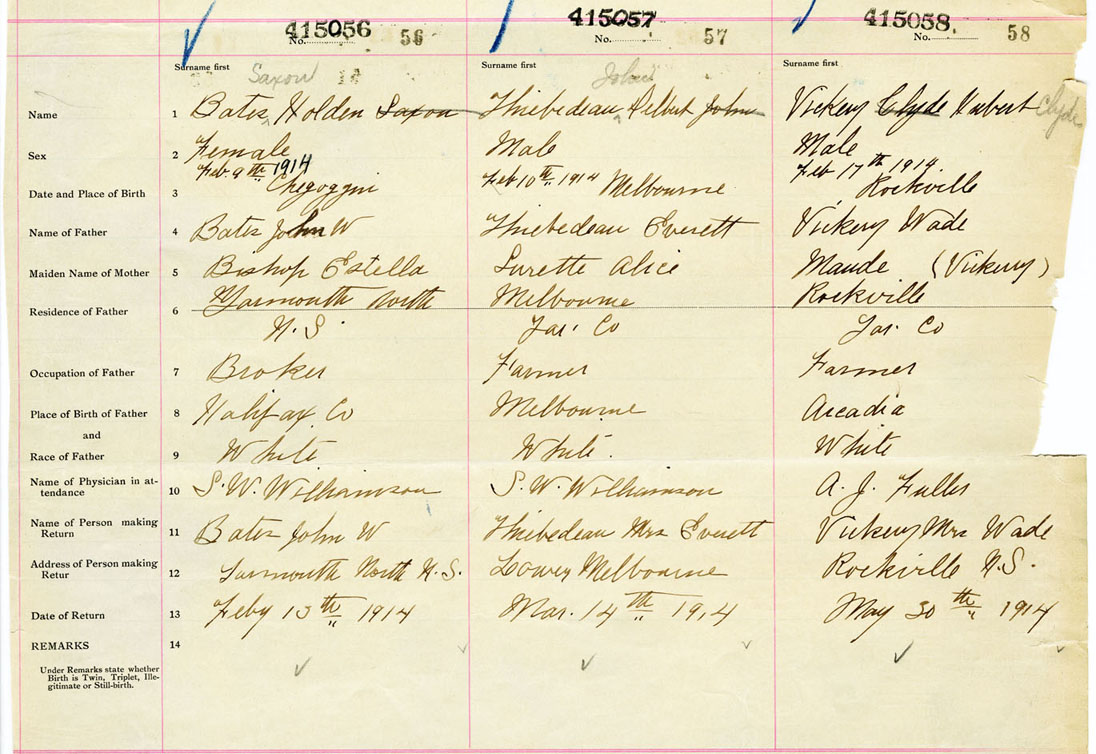 415056 415057 415058
No. 56 No. 57 No. 58
Surname first Surname first Surname first
Saxon John
Name 1 Bates Holden Saxon Thiebedeau Delbert John Vickery Clyde Hubert Clyde
Sex 2 Female Male Male
Feb 9th 1914 Feb 10th 1914 Melbourne Feb 17th 1914
Date and Place of Birth 3 Chegoggin Rockville
Name of Father 4 Bates John W Thiebedeau Everett Vickery Wade
Maiden Name of Mother 5 Bishop Estella Surette Alice Maude (Vickery)
Residence of Father 6 Yarmouth North Melbourne Rockville
N.S. Yar. Co Yar. Co
Occupation of Father 7 Broker Farmer Farmer
Place of Birth of Father 8 Halifax Co Melbourne Arcadia
and
Race of Father 9 White White. White
Name of Physician in at-
tendance 10 S. W. Williamson S. W. Williamson A. J. Fuller
Name of Person making
Return 11 Bates John W Thiebedeau Mrs Everett Vickery Mrs Wade
Address of Person making
Retur 12 Yarmouth North N.S. Lower Melbourne Rockville N.S.
Date of Return 13 Feby 13th 1914 Mar. 14th 1914 May 30th 1914
REMARKS 14
Under Remarks state whether
Birth is Twin, Triplet, Ille-
gitimate or Still-birth.